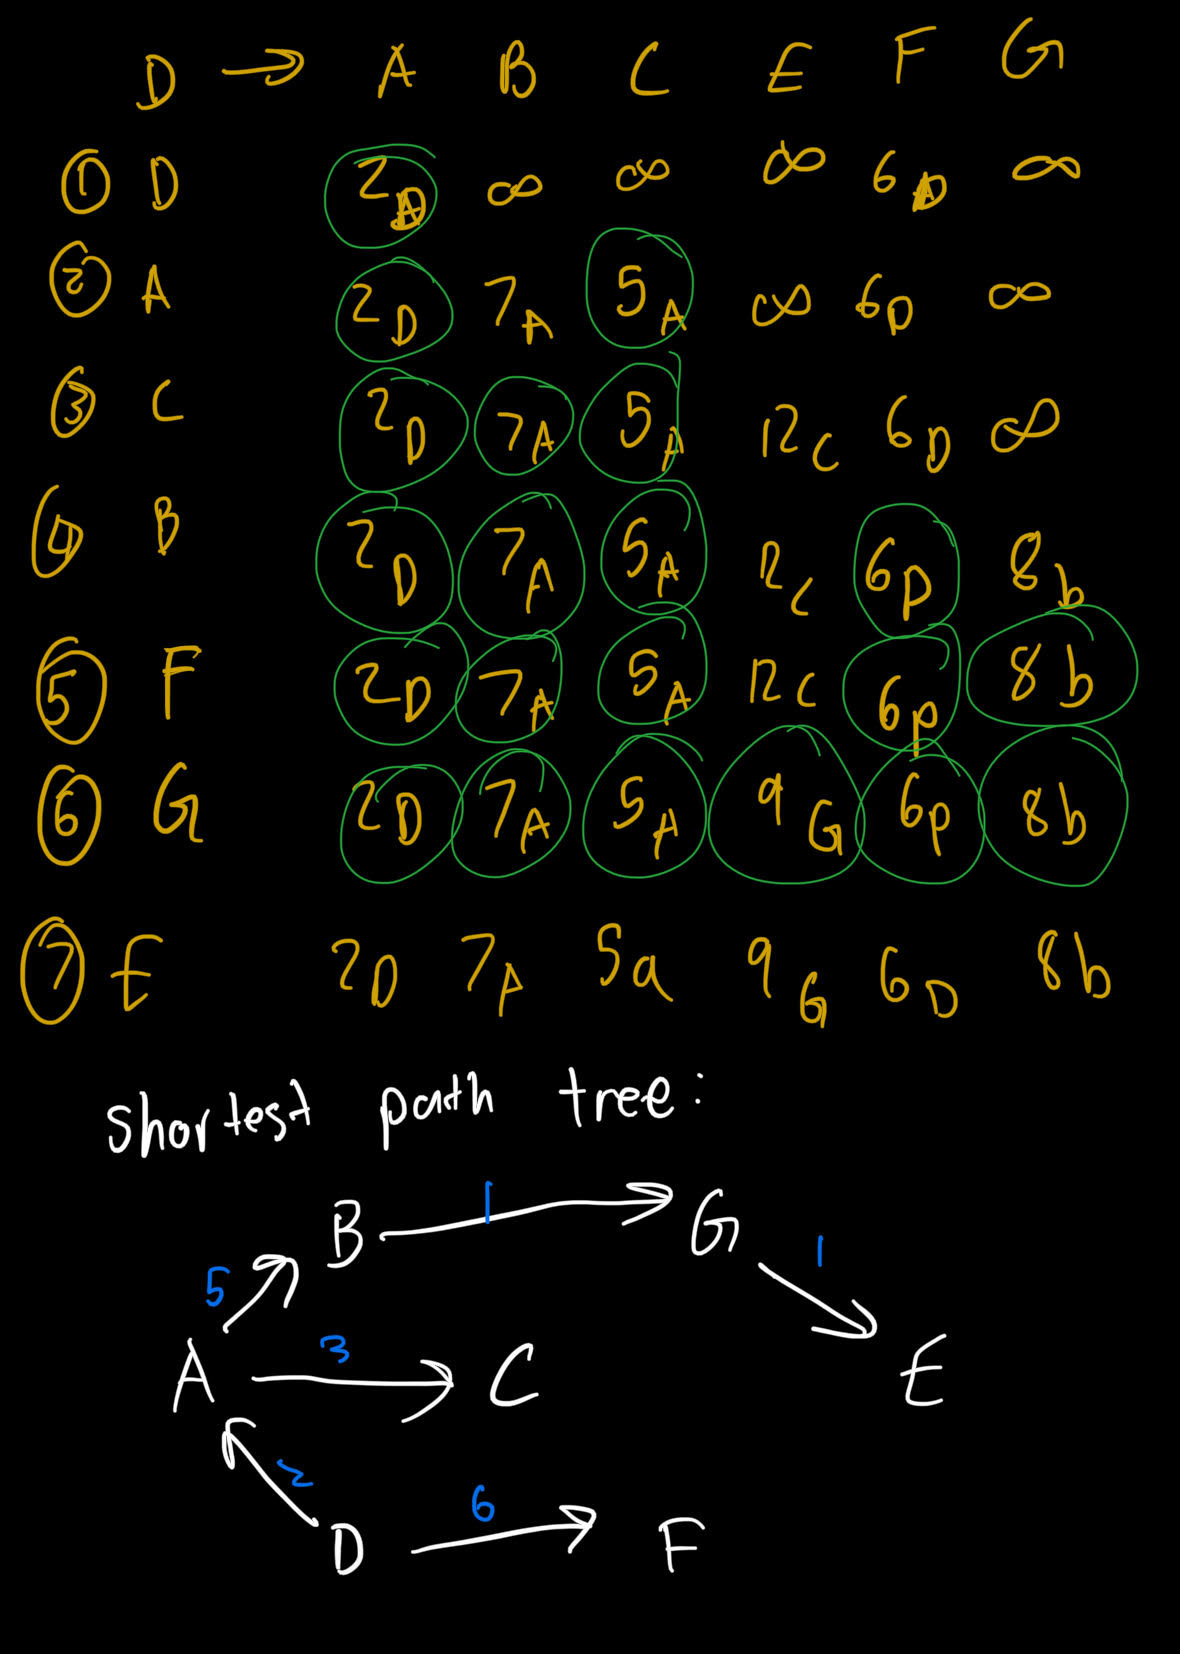 D → A B C E F G
① D 2D ∞ ∞ ∞ 6D ∞
② A 2D 7A 5A ∞ 6D ∞
③ C 2D 7A 5A 12C 6D ∞
④ B 2D 7A 5A 12C 6D 8b
⑤ F 2D 7A 5A 12C 6D 8b
⑥ G 2D 7A 5A 9G 6D 8b
⑦ E 2D 7A 5a 9G 6D 8b
shortest path tree:
B 1 G
5 1
A 3 C E
2 6
D F